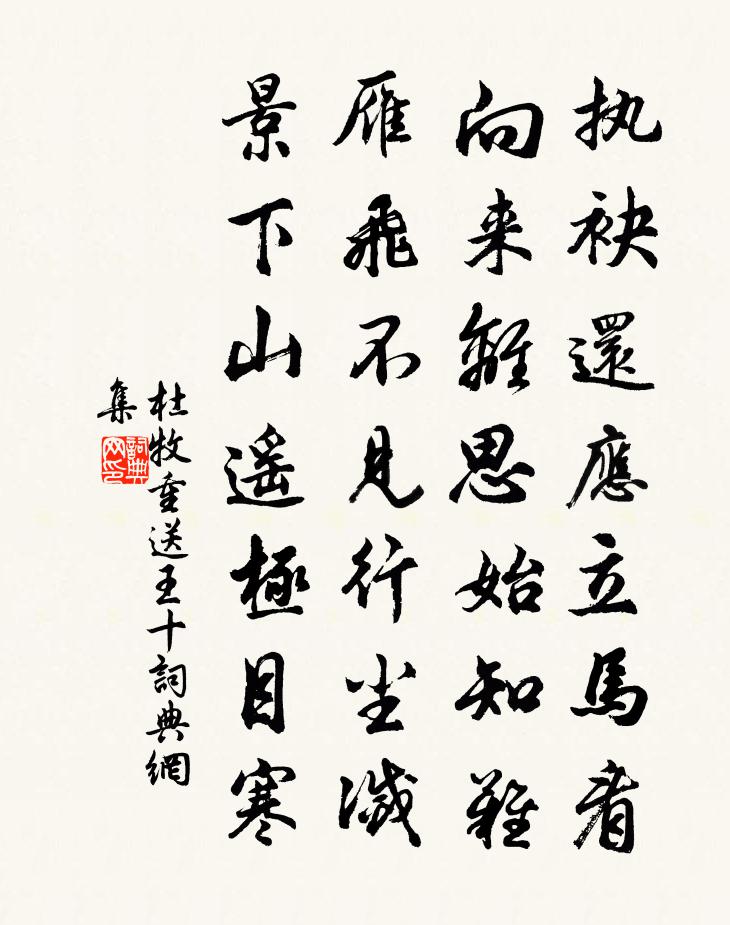 执袂還應立馬看
向来離思始知難
雁飛不見行尘滅
景下山遥極目寒
杜牧重送王十詞典網
集
詞典网印